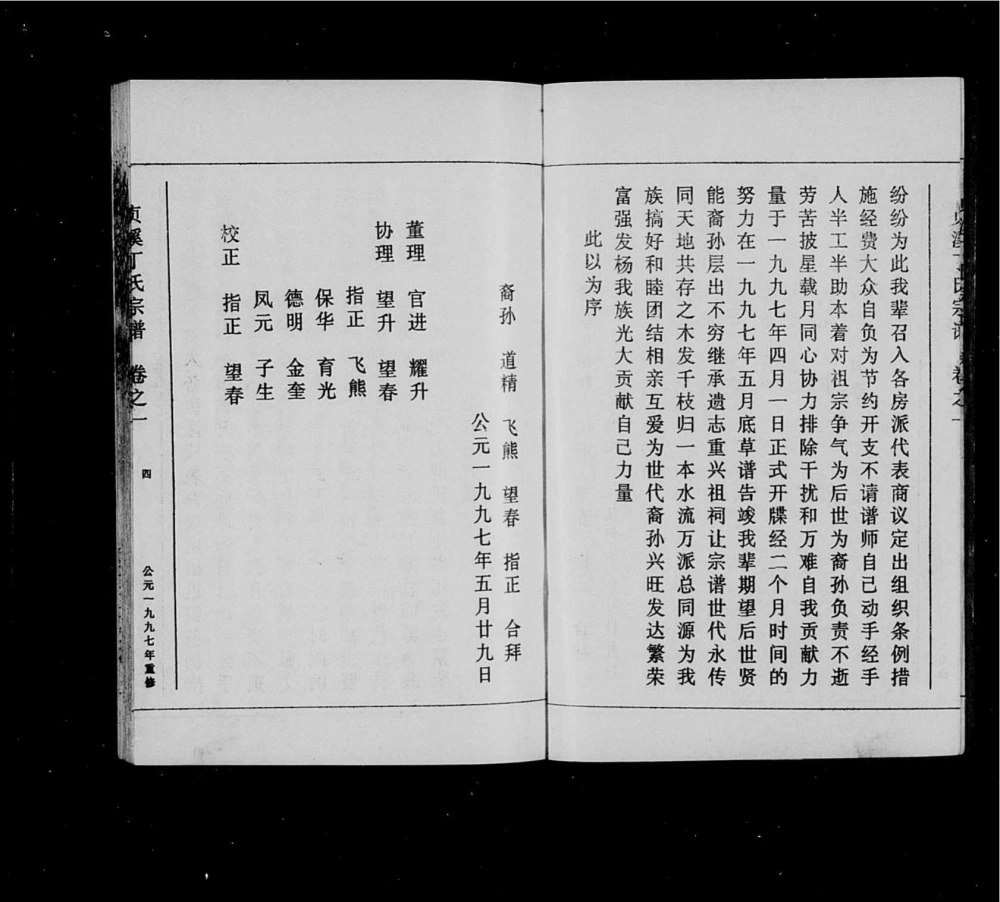 纷纷为此我辈召入各房派代表商议定出组织条例措
施经费大众自负为节约开支不请谱师自己动手经手
人半工半助本着对祖宗争气为后世为裔孙负责不逝
劳苦披星载月同心协力排除干扰和万难自我贡献力
量于一九九七年四月一日正式开牒经二个月时间的
努力在一九九七年五月底草谱告竣我辈期望后世贤
能裔孙层出不穷继承遗志重兴祖祠让宗谱世代永传
同天地共存之木发千枝归一本水流万派总同源为我
族搞好和睦团结相亲互爱为世代裔孙兴旺发达繁荣
富强发杨我族光大贡献自己力量
此以为序
裔孙 道精 飞熊 望春 指正 合拜
公元一九九七年五月廿九日
董理 官进 耀升
协理 望升 望春
指正 飞熊
保华 育光
德明 金奎
凤元 子生
校正 指正 望春
贞溪丁氏宗谱 卷之一
四
公元一九九七年重修